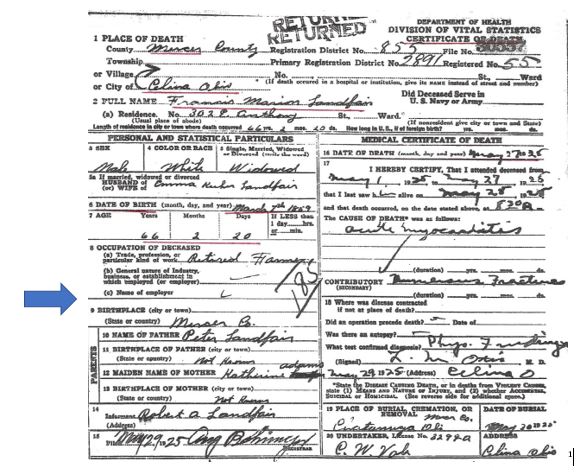 RETURNED
RETURNED
DEPARTMENT OF HEALTH
DIVISION OF VITAL STATISTICS
CERTIFICATE OF DEATH
1 PLACE OF DEATH
County Mercer County Registration District No. 855 File No.
Township Primary Registration District No. 2891 Registered No. 55
or Village No. St., Ward
or City of Celina Ohio (If death occurred in a hospital or institution, give its name instead of street and number)
Did Deceased Serve in
U. S. Navy or Army
2 FULL NAME Francis Marion Landfair
(a) Residence. No. 302 E. Anthony St., Ward.
(Usual place of abode) (If nonresident give city or town and State)
Length of residence in city or town where death occurred 66 yrs. 2 mos. 20 ds. How long in U. S., if of foreign birth? yrs. mos. ds.
PERSONAL AND STATISTICAL PARTICULARS
3 SEX 4 COLOR OR RACE 5 Single, Married, Widowed
or Divorced (write the word)
Male White Widowed
5a If married, widowed or divorced
HUSBAND of
(or) WIFE of Emma Landfair
6 DATE OF BIRTH (month, day, and year) March 7th 1859
7 AGE Years Months Days If LESS than
1 day, hrs.
or min.
66 2 20
8 OCCUPATION OF DECEASED
(a) Trade, profession, or
particular kind of work Retired Farmer
(b) General nature of Industry,
business, or establishment in
which employed (or employer)
(c) Name of employer
9 BIRTHPLACE (city or town)
(State or country) Mercer Co.
PARENTS
10 NAME OF FATHER Peter Landfair
11 BIRTHPLACE OF FATHER (city or town)
(State or country) Not Known
12 MAIDEN NAME OF MOTHER Katherine adams
13 BIRTHPLACE OF MOTHER (city or town)
(State or country) Not Known
14
Informant Robert A. Landfair
(Address)
15
Filed May 29, 1925 REGISTRAR
MEDICAL CERTIFICATE OF DEATH
16 DATE OF DEATH (month, day, and year) May 27 1925
17
I HEREBY CERTIFY, That I attended deceased from
May 1, 1925, to May 27, 1925
that I last saw h alive on May 1925
and that death occurred, on the date stated above, at 830 A m.
The CAUSE OF DEATH was as follows:
acute myocarditis
(duration) yrs. mos. ds.
CONTRIBUTORY
(SECONDARY) Fracture
(duration) yrs. mos. ds.
18 Where was disease contracted
if not at place of death?
Did an operation precede death? Date of
Was there an autopsy?
What test confirmed diagnosis? Phys. Findings
(Signed) L. M. Otis M. D.
May 29, 1925 (Address) Celina O
*State the DISEASE CAUSING DEATH, or in deaths from VIOLENT CAUSES, state (1) MEANS AND NATURE OF INJURY, and (2) whether ACCIDENTAL, SUICIDAL or HOMICIDAL. (See reverse side for additional space).
19 PLACE OF BURIAL, CREMATION, OR
REMOVAL Mer Co.
DATE OF BURIAL
May 1925
20 UNDERTAKER, License No. 3292a
ADDRESS
Celina Ohio
1